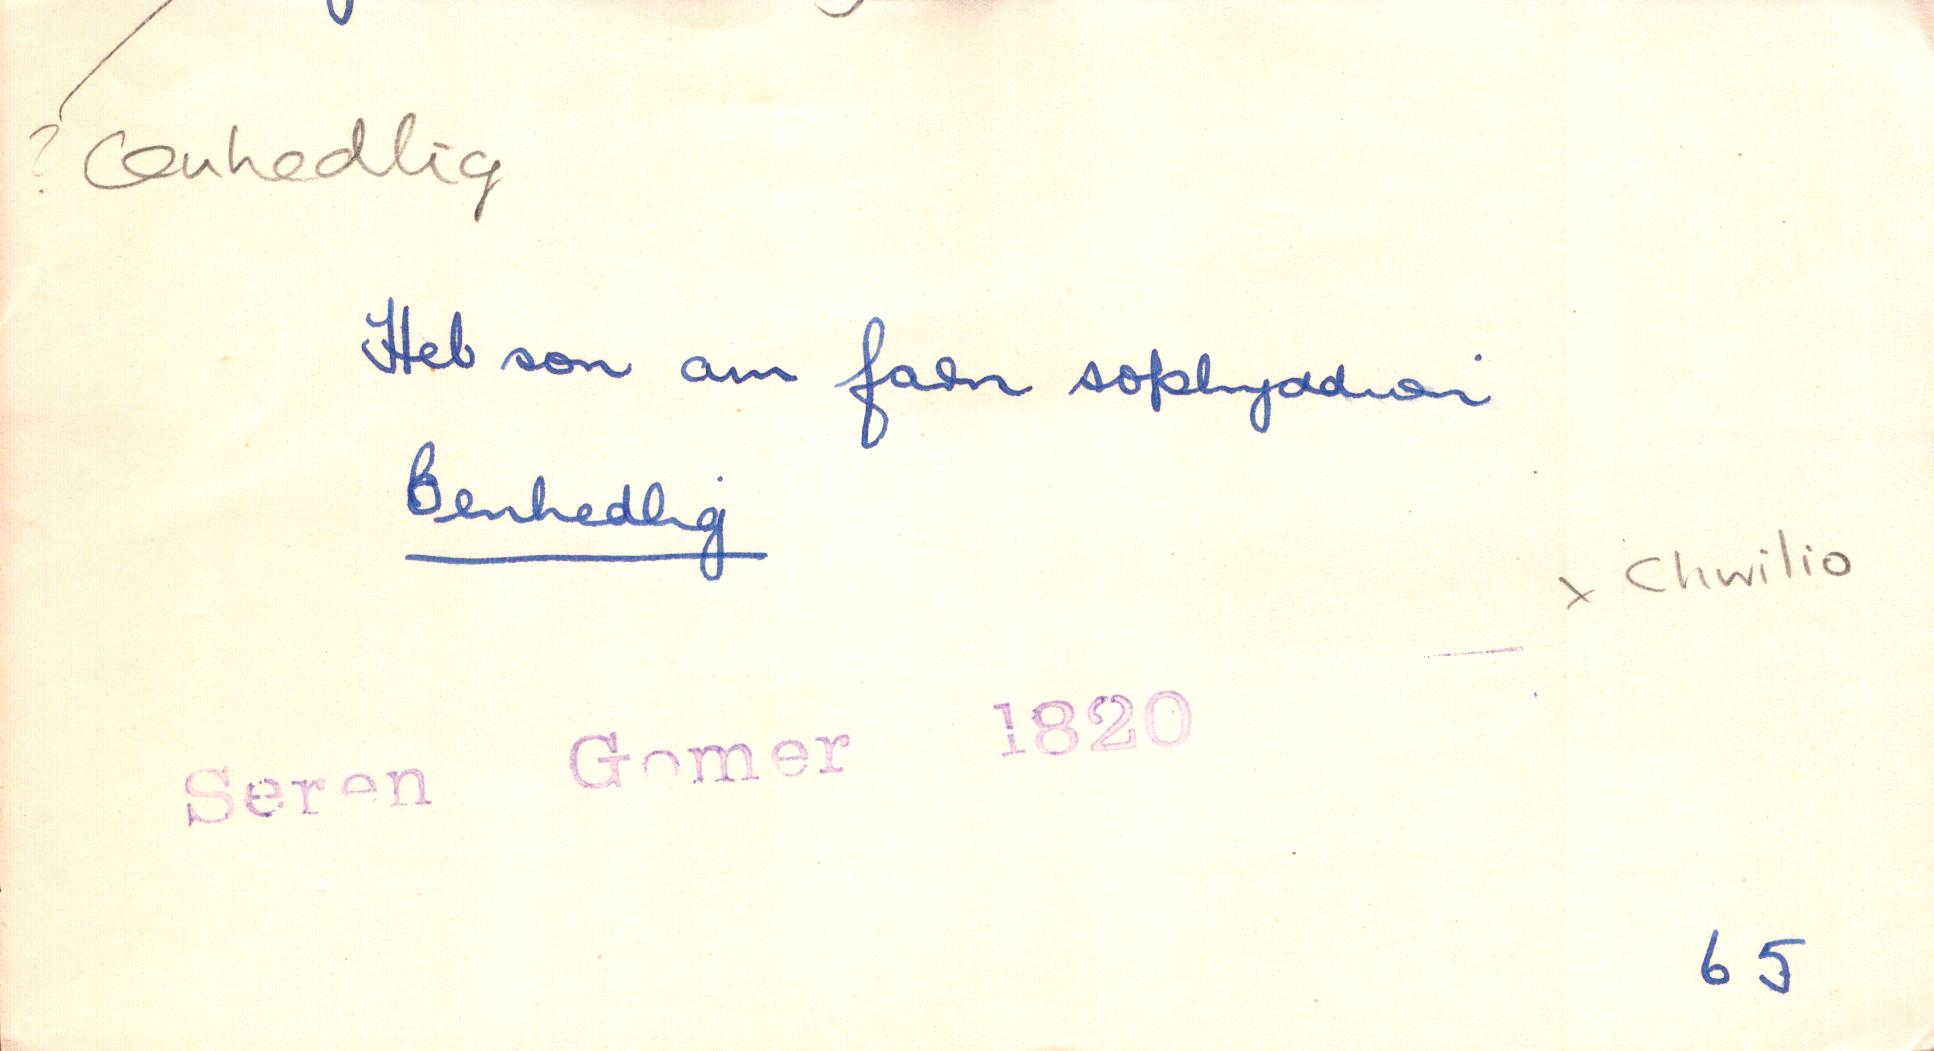 ? Cenhedlig
Heb son am farn sophyddion
Benhedlig
x Chwilio
Seren Gomer 1820
65